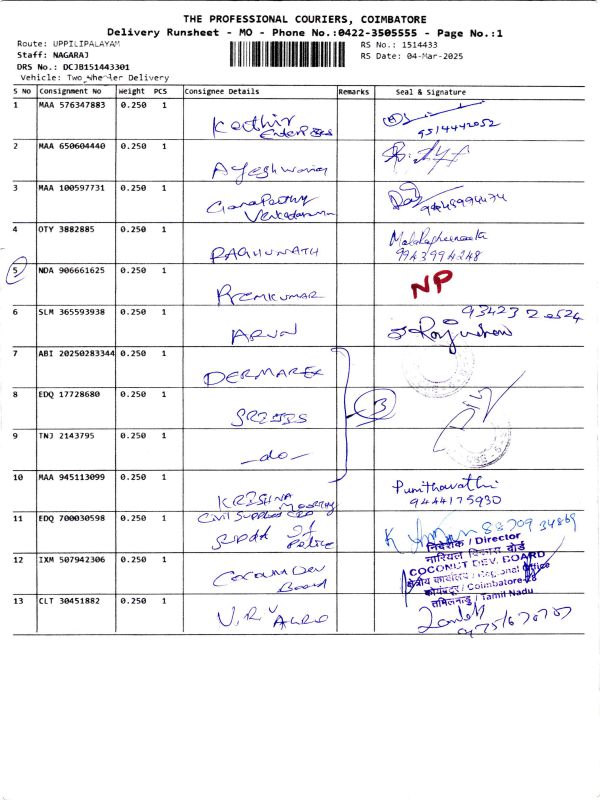 THE PROFESSIONAL COURIERS, COIMBATORE
Delivery Runsheet - MO - Phone No.:0422-3505555 - Page No.:1
Route: UPPILIPALAYAM
RS No.: 1514433
Staff: NAGARAJ
RS Date: 04-Mar-2025
DRS No.: DCJB151443301
Vehicle: Two Wheeler Delivery
S No Consignment No Weight PCS Consignee Details Remarks Seal & Signature
1 MAA 576347883 0.250 1
9514442052
2 MAA 650604440 0.250 1
3 MAA 100597731 0.250 1 Ganapathy
4 OTY 3882885 0.250 1 RAGHUNATH
9943994248
5 NDA 906661625 0.250 1 PREMKUMAR NP
6 SLM 365593938 0.250 1 ARUN
7 ABI 20250283344 0.250 1
8 EDQ 17728680 0.250 1 3
9 TNJ 2143795 0.250 1 -do-
10 MAA 945113099 0.250 1 KRISHNA Moorthy Punithavathi
9444175930
11 EDQ 700030598 0.250 1 Civil Supplies CID
Supdt of Police
निदेशक / Director
नारियल विकास बोर्ड
12 IXM 507942306 0.250 1 Coconut Dev Board COCONUT DEV. BOARD
क्षेत्रीय कार्यालय / Regional Office
कोयम्बटूर / Coimbatore-28
तमिलनाडु / Tamil Nadu
13 CLT 30451882 0.250 1